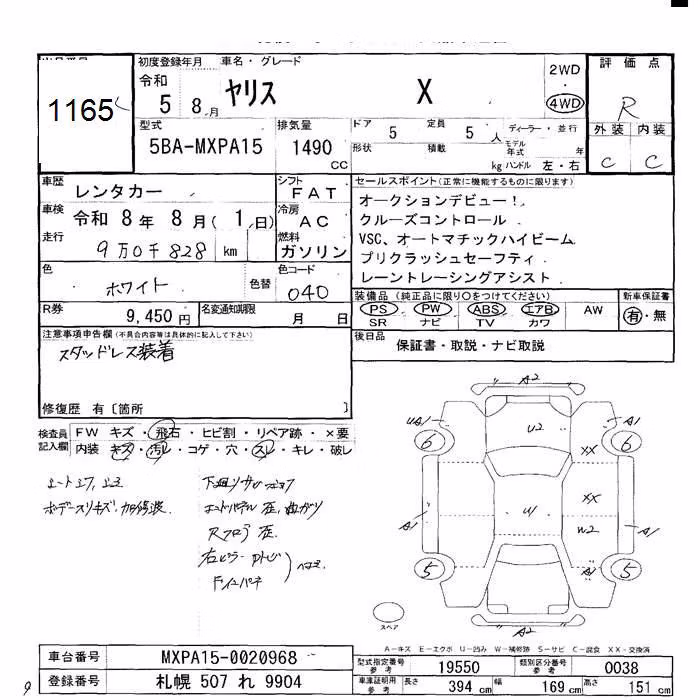 1165
初度登録年月 車名・グレード
令和 5 8.月 ヤリス X 2WD・4WD
評価点 R
外装 内装
C C
型式 5BA-MXPA15
排気量 1490 CC
ドア 5 定員 5 人 ディーラー・並行
形状 積載 kg モデル年式 年
ハンドル 左・右
車歴 レンタカー
シフト FAT
車検 令和 8年 8月( 1,日)
冷房 AC
走行 9万0千828 km
燃料 ガソリン
色 ホワイト 色替
色コード 040
R券 9,450円
名変通知期限 月 日
セールスポイント(正常に機能するものに限ります)
オークションデビュー!
クルーズコントロール
VSC、オートマチックハイビーム
プリクラッシュセーフティ
レーントレーシングアシスト
装備品(純正品に限り○をつけてください) 新車保証書
PS PW ABS エアB AW 有・無
SR ナビ TV カワ
後日品 保証書・取説・ナビ取説
注意事項申告欄(不具合内容等は具体的に記入して下さい)
スタッドレス装着
修復歴 有〔箇所 〕
検査員記入欄 FW キズ・飛石・ヒビ割・リペア跡・×要
内装 キズ・汚レ・コゲ・穴・スレ・キレ・破レ
A2
UA1 A1
6 U2 6
XX
XX
U1
A1 W2 A1
5 A1 5
A2
スペア
A-キズ E-エクボ U-凹み W-補修跡 S-サビ C-腐食 XX-交換済
車台番号 MXPA15-0020968
登録番号 札幌 507 れ 9904
型式指定番号 参考 19550 類別区分番号 参考 0038
車庫証明用 参考 長さ 394 cm 幅 169 cm 高さ 151 cm
9